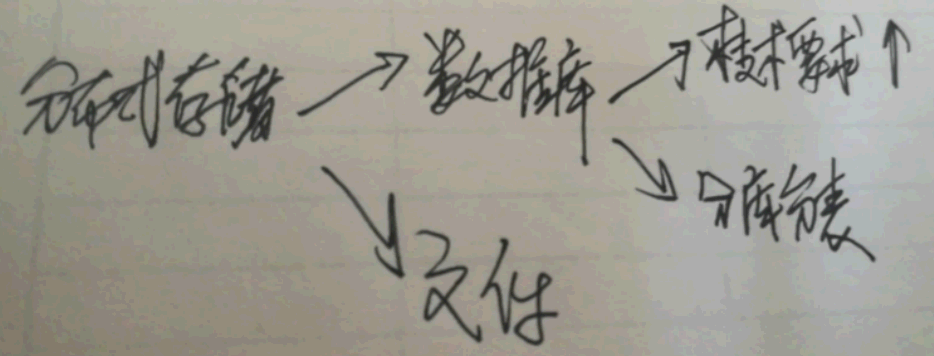 分布式存储 → 数据库 → 技术要求 ↑
分库分表
文件